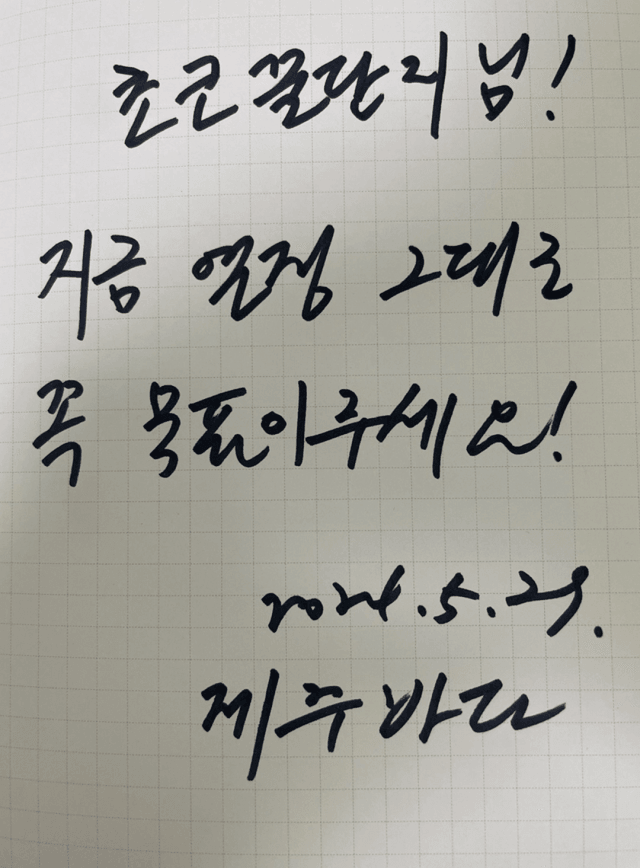 초코꿀단지님!
지금 열정 그대로
꼭 목표이주세요!
2024.5.29.
제주바다